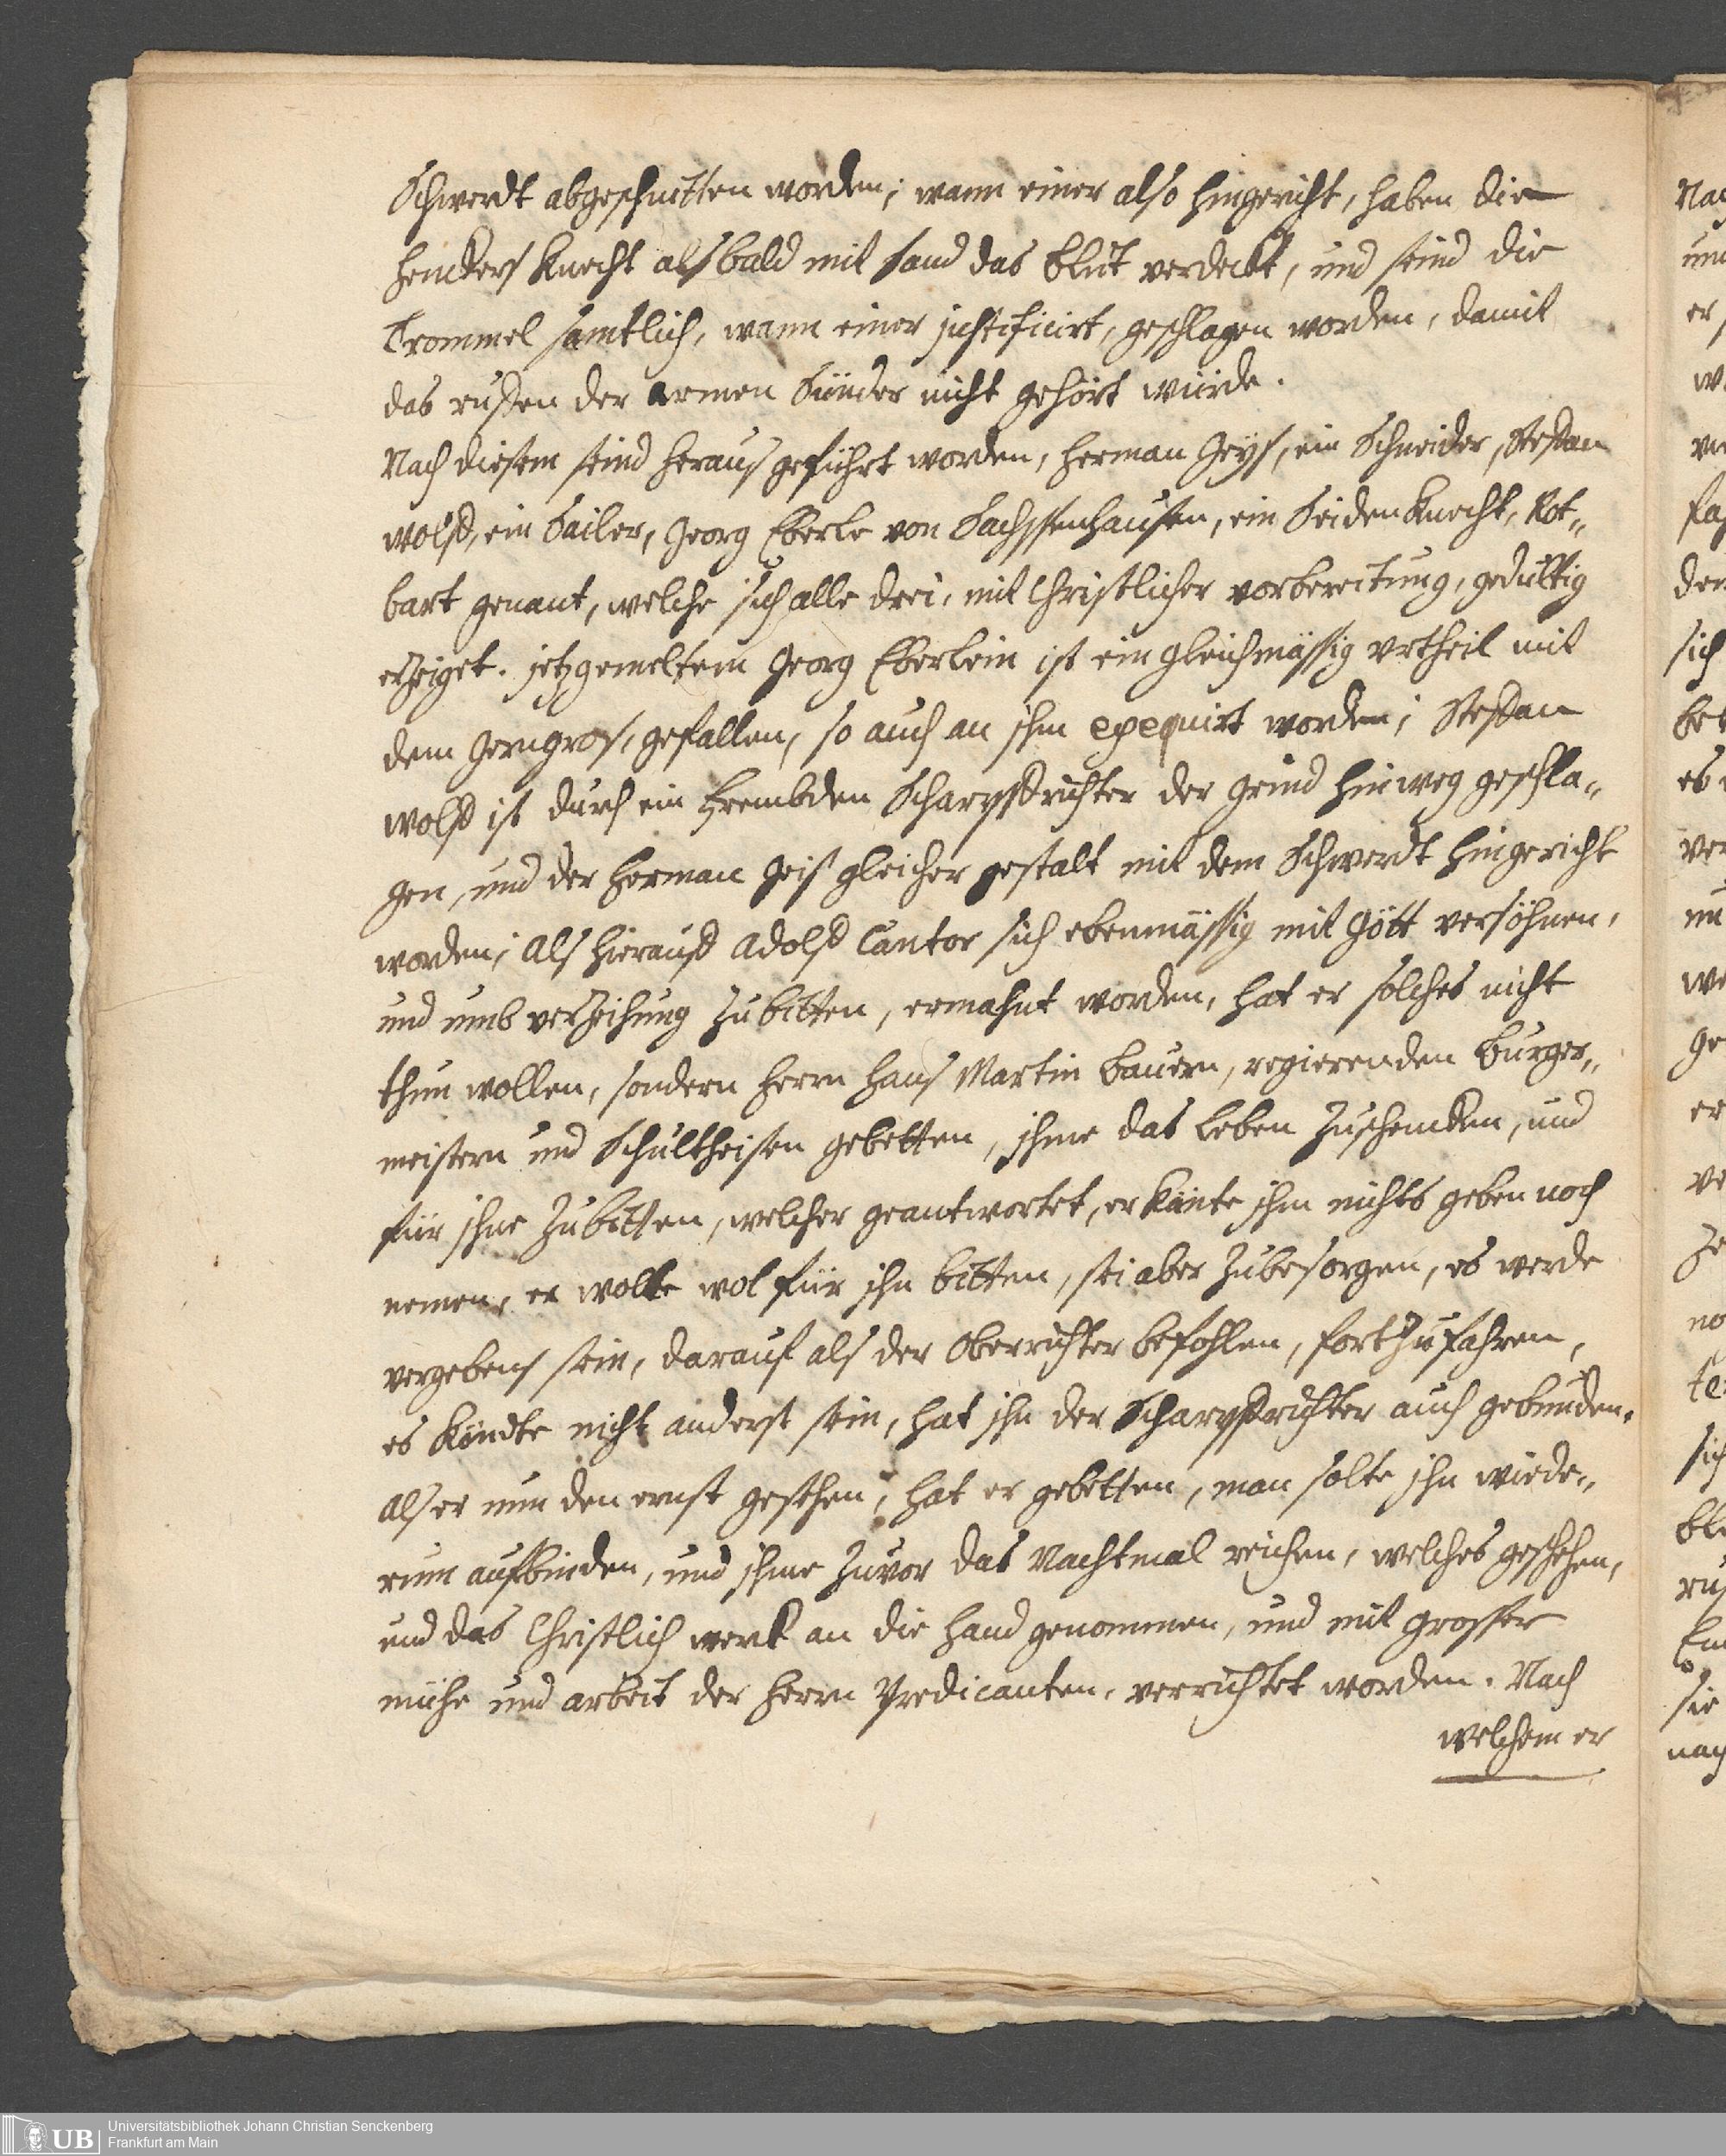 Schwerdt abgeschnitten worden; wann einer also hingericht, haben die
henckers Knecht alsbald mit Sand das Blut verdeckt, und seind die
Trommel samtlich, wann einer justificirt, geschlagen worden, damit
das ruffen der armen Sünder nicht gehört würde.
Nach diesem seind heraus geführt worden, Herman Geys, ein Schneider, Steffan
Wolff, ein Sailer, Georg Eberle von Sachssenhausen, ein Seiden Knecht, Rot„
bart genant, welche sich alle drei, mit Christlicher vorbereitung, gedultig
erzeiget. jetzgemeltem Georg Eberlein ist ein gleichmässig urtheil mit
dem Gerngros, gefallen, so auch an ihm exequirt worden; Steffan
Wolff ist durch ein frembden Scharpffrichter der Grind hinweg geschla„
gen, und der Herman Geis gleicher gestalt mit dem Schwerdt hingericht
worden; Als hierauff Adolff Cantor sich ebenmässig mit Gott versöhnen,
und umb verzeihung zubitten, ermahnt worden, hat er solches nicht
thun wollen, sondern Herrn Hans Martin Bauern, regierenden Burger„
meistern und Schultheisen gebetten, ihme das Leben zuschencken, und
für ihne zubitten, welcher geantwortet, er könte ihm nichts geben noch
nemen, er wolte wol für ihn bitten, sei aber zubesorgen, es werde
vergebens sein, darauf als der Oberrichter befohlen, fortzufahren,
es köndte nicht anderst sein, hat ihn der Scharpffrichter auch gebunden.
Als er nun den ernst gesehen, hat er gebetten, man solte ihn wiede„
rum aufbinden, und ihme zuvor das Nachtmal reichen, welches geschehen,
und das Christlich werk an die hand genommen, und mit grosser
mühe und arbeit der Herrn Predicanten, verrichtet worden. Nach
welchem er
Universitätsbibliothek Johann Christian Senckenberg
Frankfurt am Main
UB